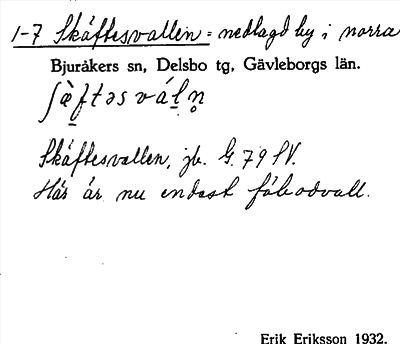 1-7 Skäftesvallen = nedlagd by i norra
Bjuråkers sn, Delsbo tg, Gävleborgs län.
ʃæ̀ftəsváḻn̥
Skäftesvallen, jb. G. 79 SV.
Här är nu endast fäbodvall.
Erik Eriksson 1932.